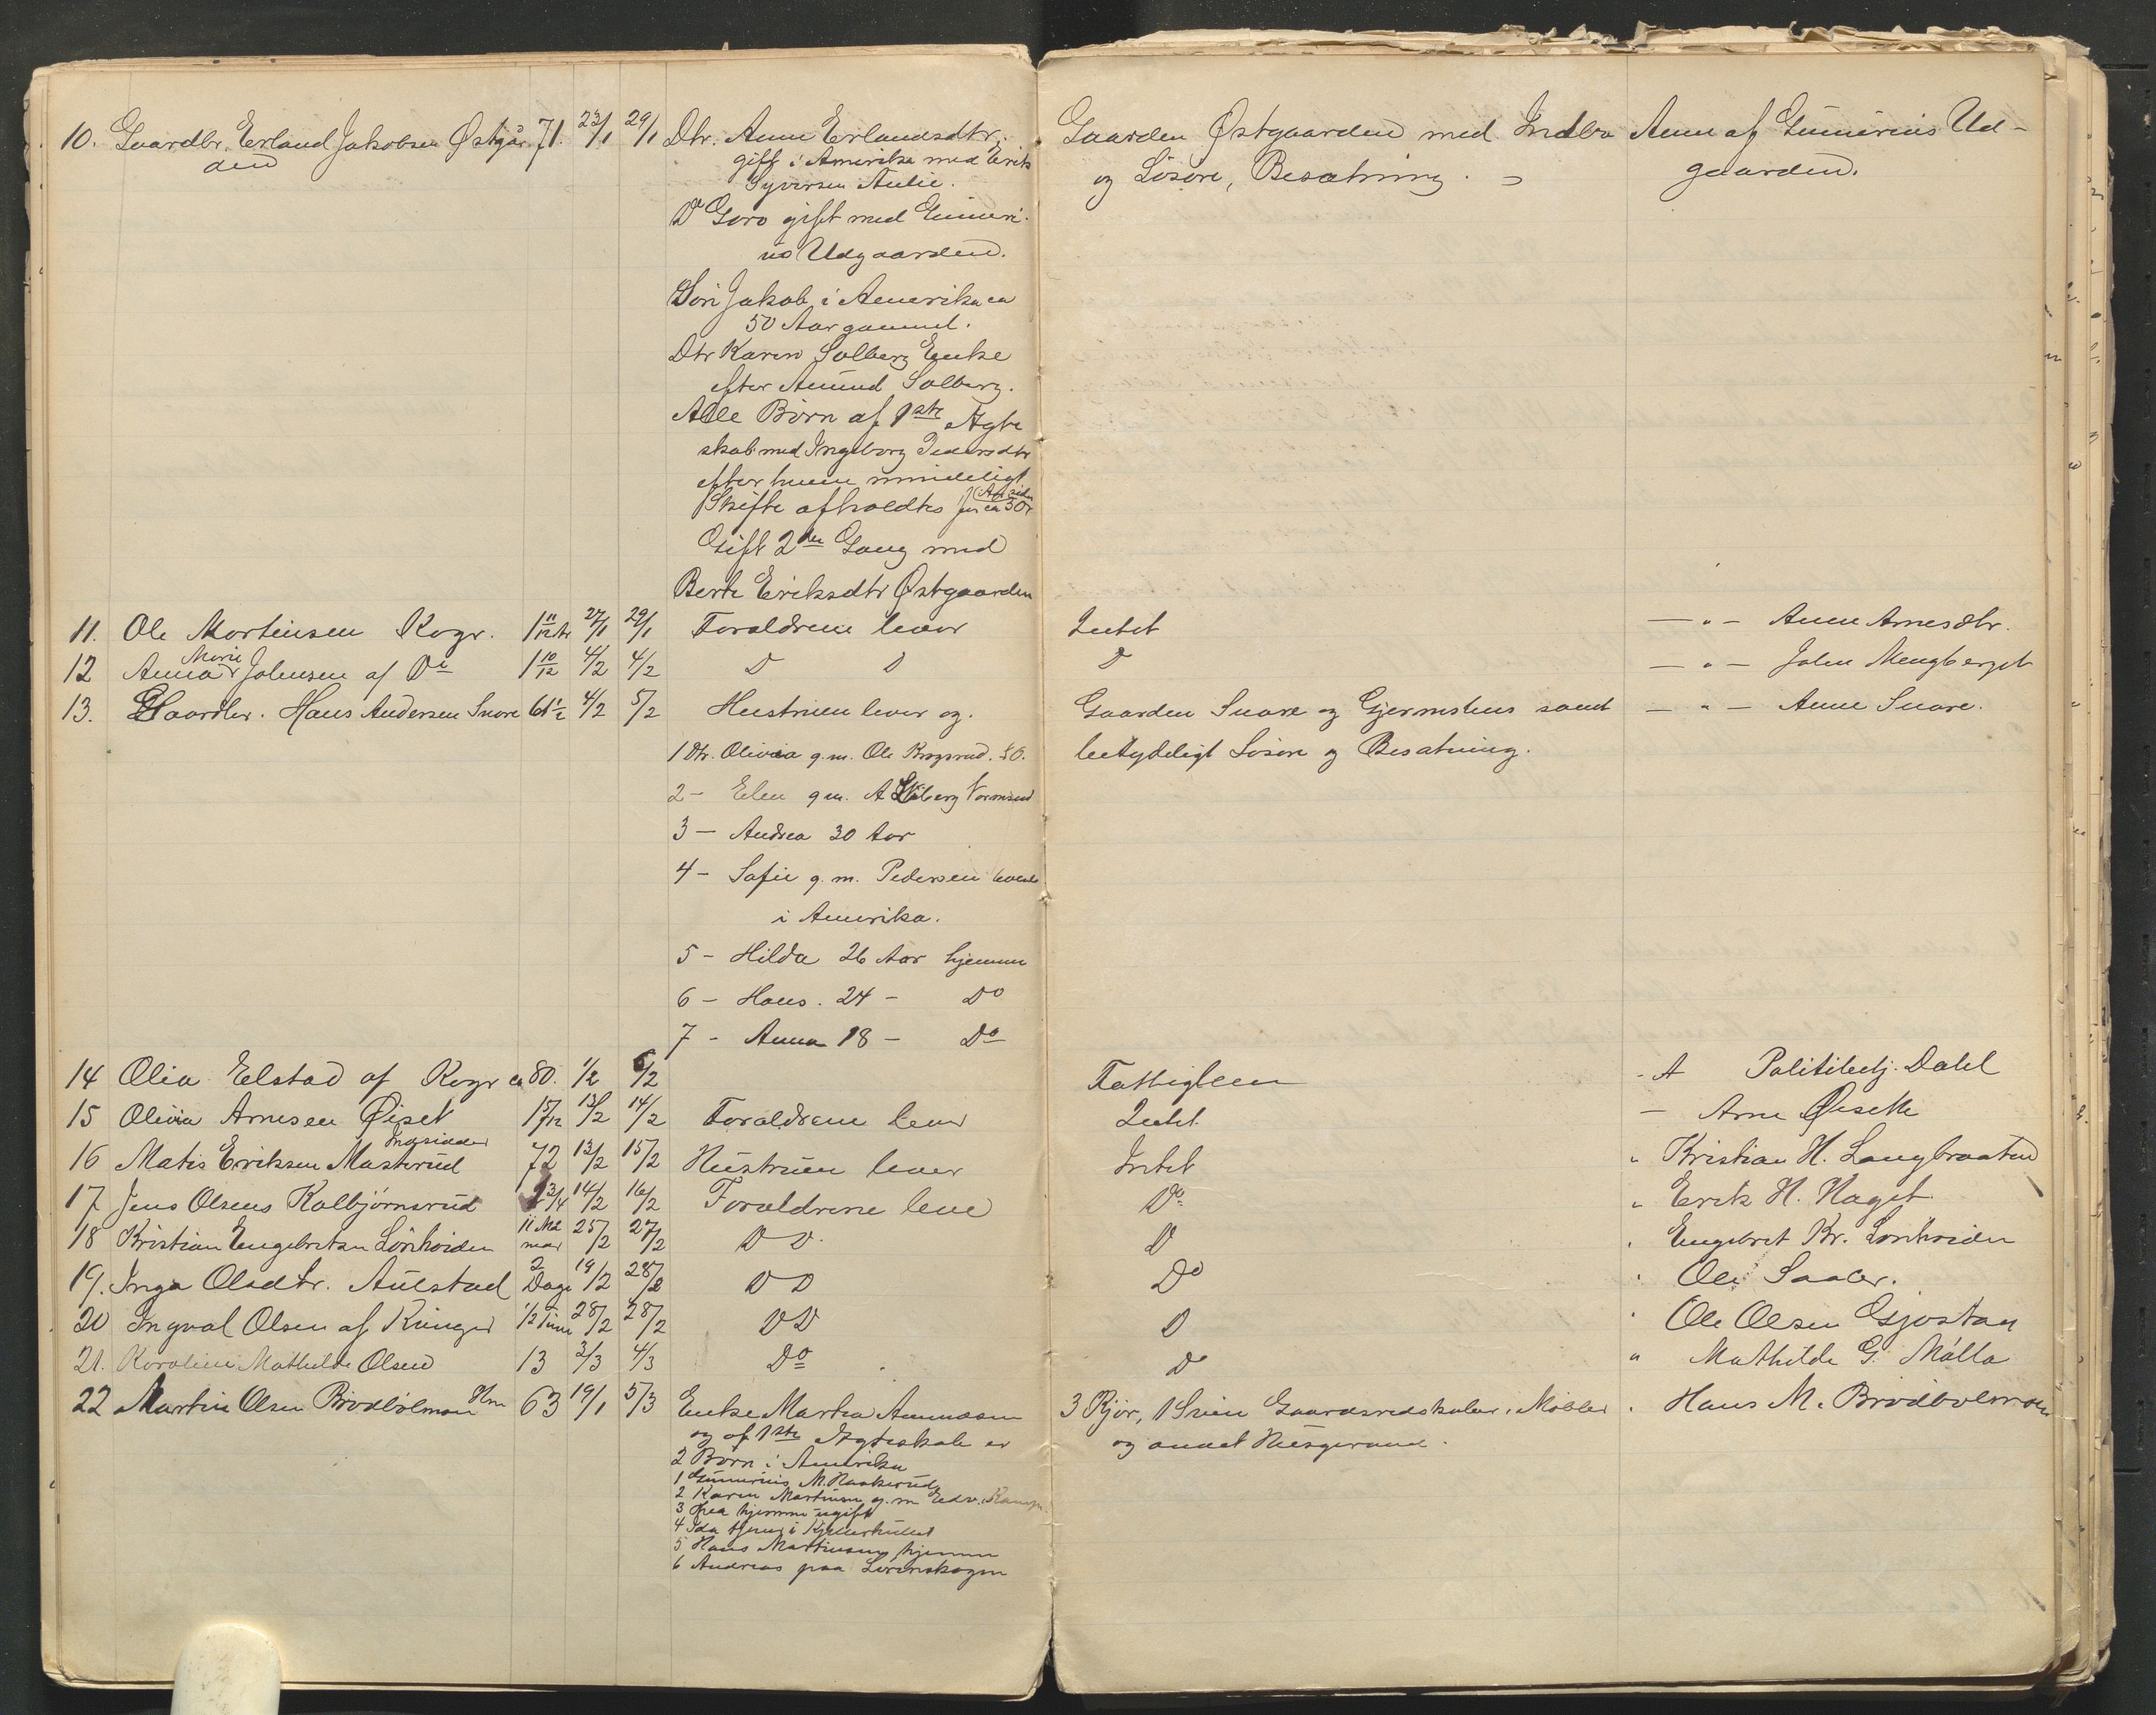 10. Gaardbr. Erland Jakobsen Østgår 71. 23/1 29/1 Dtr. Anne Erlandsdtr. Gaarden Østgaarden med Indbo Anm af Gunerius Ud-
den gift i Amerika med Erik og Løsøre, Besætning. gaarden.
Syversen Aulie.
Do Goro gift med Guneri-
us Udgaarden.
Søn Jakob, i Amerika ca
50 Aar gammel.
Dtr Karen Solberg Enke
efter Amund Solberg.
Alle Børn af 1ste Ægte
skab med Ingeborg Pedersdtr
efter hvem mindeligt
Skifte afholdtes for ca 30 Aar siden
Gift 2den Gang med
Berte Eriksdtr Østgaarden
11. Ole Mortinsen Kogr. 1 11/12 27/1 29/1 Forældrene lever Intet — " — Anne Arnesdtr.
12 Anna Marie Johnsen af Do 1 10/12 4/2 4/2 D D D — " — John Mengberget
13. Gaardbr. Hans Andersen Snare 61 1/2 4/2 5/2 Hustruen lever og. Gaarden Snare og Gjermshus samt — " — Anne Snare.
1 Dtr. Olivia g.m. Ole Krogsrud. S.O. betydeligt Løsøre og Besætning.
2 - Elen g m. A Skiberg Vormsund
3 — Andrea 30 Aar
4 - Sofie g. m. Pedersen
i Amerika.
5 - Hilda 26 Aar hjemme
6 - Hans. 24 - Do
7 - Anna 18 - Do
14 Olia Elstad af Kogr ca 80. 1/2 6/2 Fattiglem - A Politibetj. Dahl
15 Olivia Arnesen Øiset 1 5/12 13/2 14/2 Forældrene lever Intet — Arne Øiseth
16 Matis Eriksen Masterud Inderst 72 13/2 15/2 Hustruen lever Intet " Kristian H. Langbraaten
17 Jens Olsens Kolbjørnsrud 2 3/4 14/2 16/2 Forældrene leve Do " Erik H. Haget
18 Kristian Engebretsen Lønhoiden 11 Maaneder 25/2 27/2 D D. D " Engebret Kr. Lønhoiden
19. Inga Olsdtr. Aulestad 2 Dage 19/2 28/2 D D Do " Ole Saaler.
20 Ingval Olsen af Kunger 1/2 Time 28/2 28/2 D D D " Ole Olsen Gjøstan
21. Karoline Mathilde Olsen 13 2/3 4/3 Do Do " Mathilde G. Mølla
22 Martin Olsen Brødbølmoen Hm 63 19/1 5/3 Enke Martea Amundsen 3 Kjør, 1 Sviin Gaardsredskaber, Møbler " Hans M. Brødbølmoen
og af 1ste Ægteskab er og andet Husgeraad.
2 Børn i Amerika
1 Gunerius M. Haakerud
2 Karen Martinsen g. m Edv.
3 Thea hjemme ugift
4 Ida tjener i
5 Hans Martinsen hjemme
6 Andreas paa Lørenskogen